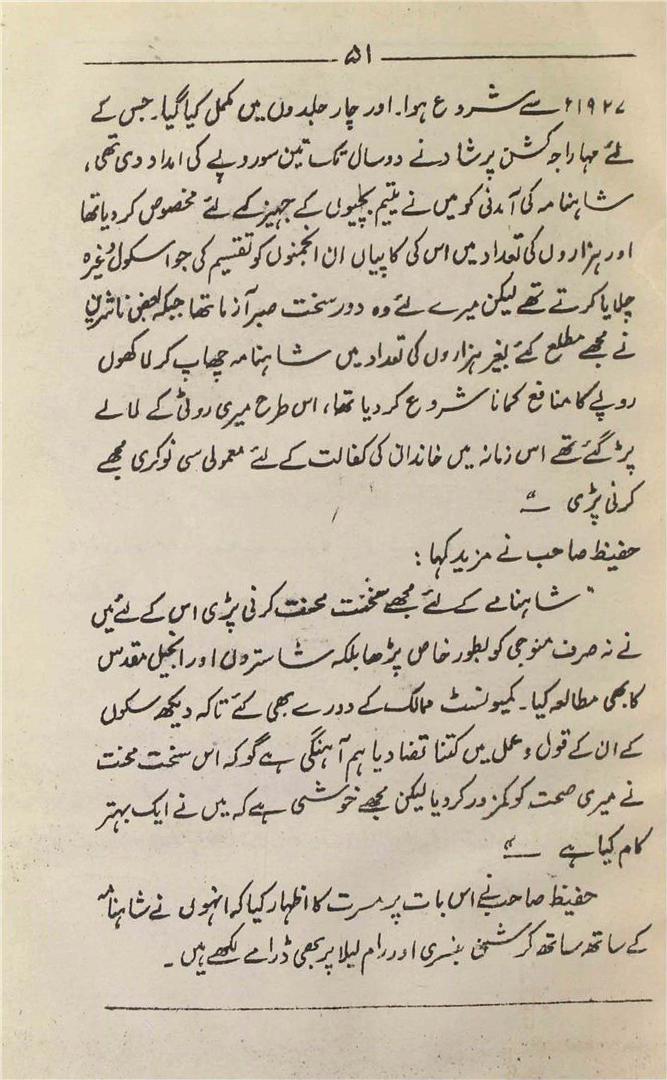 ۵۱
۱۹۲۷ء سے شروع ہوا۔ اور چار جلدوں میں مکمل کیا گیا۔ جس کے
لئے مہاراجہ کشن پرشاد نے دو سال تک تین سو روپے کی امداد دی تھی،
شاہنامہ کی آمدنی کو میں نے یتیم بچیوں کے جہیز کے لئے مخصوص کر دیا تھا
اور ہزاروں کی تعداد میں اس کی کاپیاں ان انجمنوں کو تقسیم کی جو اسکول وغیرہ
چلایا کرتے تھے لیکن میرے لئے وہ دور سخت صبر آزما تھا جبکہ بعض ناشرین
نے مجھے مطلع کئے بغیر ہزاروں کی تعداد میں شاہنامہ چھاپ کر لاکھوں
روپے کا منافع کمانا شروع کر دیا تھا، اس طرح میری روٹی کے لالے
پڑ گئے تھے اس زمانہ میں خاندان کی کفالت کے لئے معمولی سی نوکری مجھے
کرنی پڑی ــ"
حفیظ صاحب نے مزید کہا :
"شاہنامے کے لئے مجھے سخت محنت کرنی پڑی اس کے لئے میں
نے نہ صرف منوجی کو بطور خاص پڑھا بلکہ شاستروں اور انجیل مقدس
کا بھی مطالعہ کیا۔ کمیونسٹ ممالک کے دورے بھی کئے تاکہ دیکھ سکوں
کے ان کے قول و عمل میں کتنا تضاد یا ہم آہنگی ہے گو کہ اس سخت محنت
نے میری صحت کو کمزور کر دیا لیکن مجھے خوشی ہے کہ میں نے ایک بہتر
کام کیا ہے ــ"
حفیظ صاحب نے اس بات پر مسرت کا اظہار کیا کہ انہوں نے شاہنامہ
کے ساتھ ساتھ کرشن بنسری اور رام لیلا پر بھی ڈرامے لکھے ہیں ۔